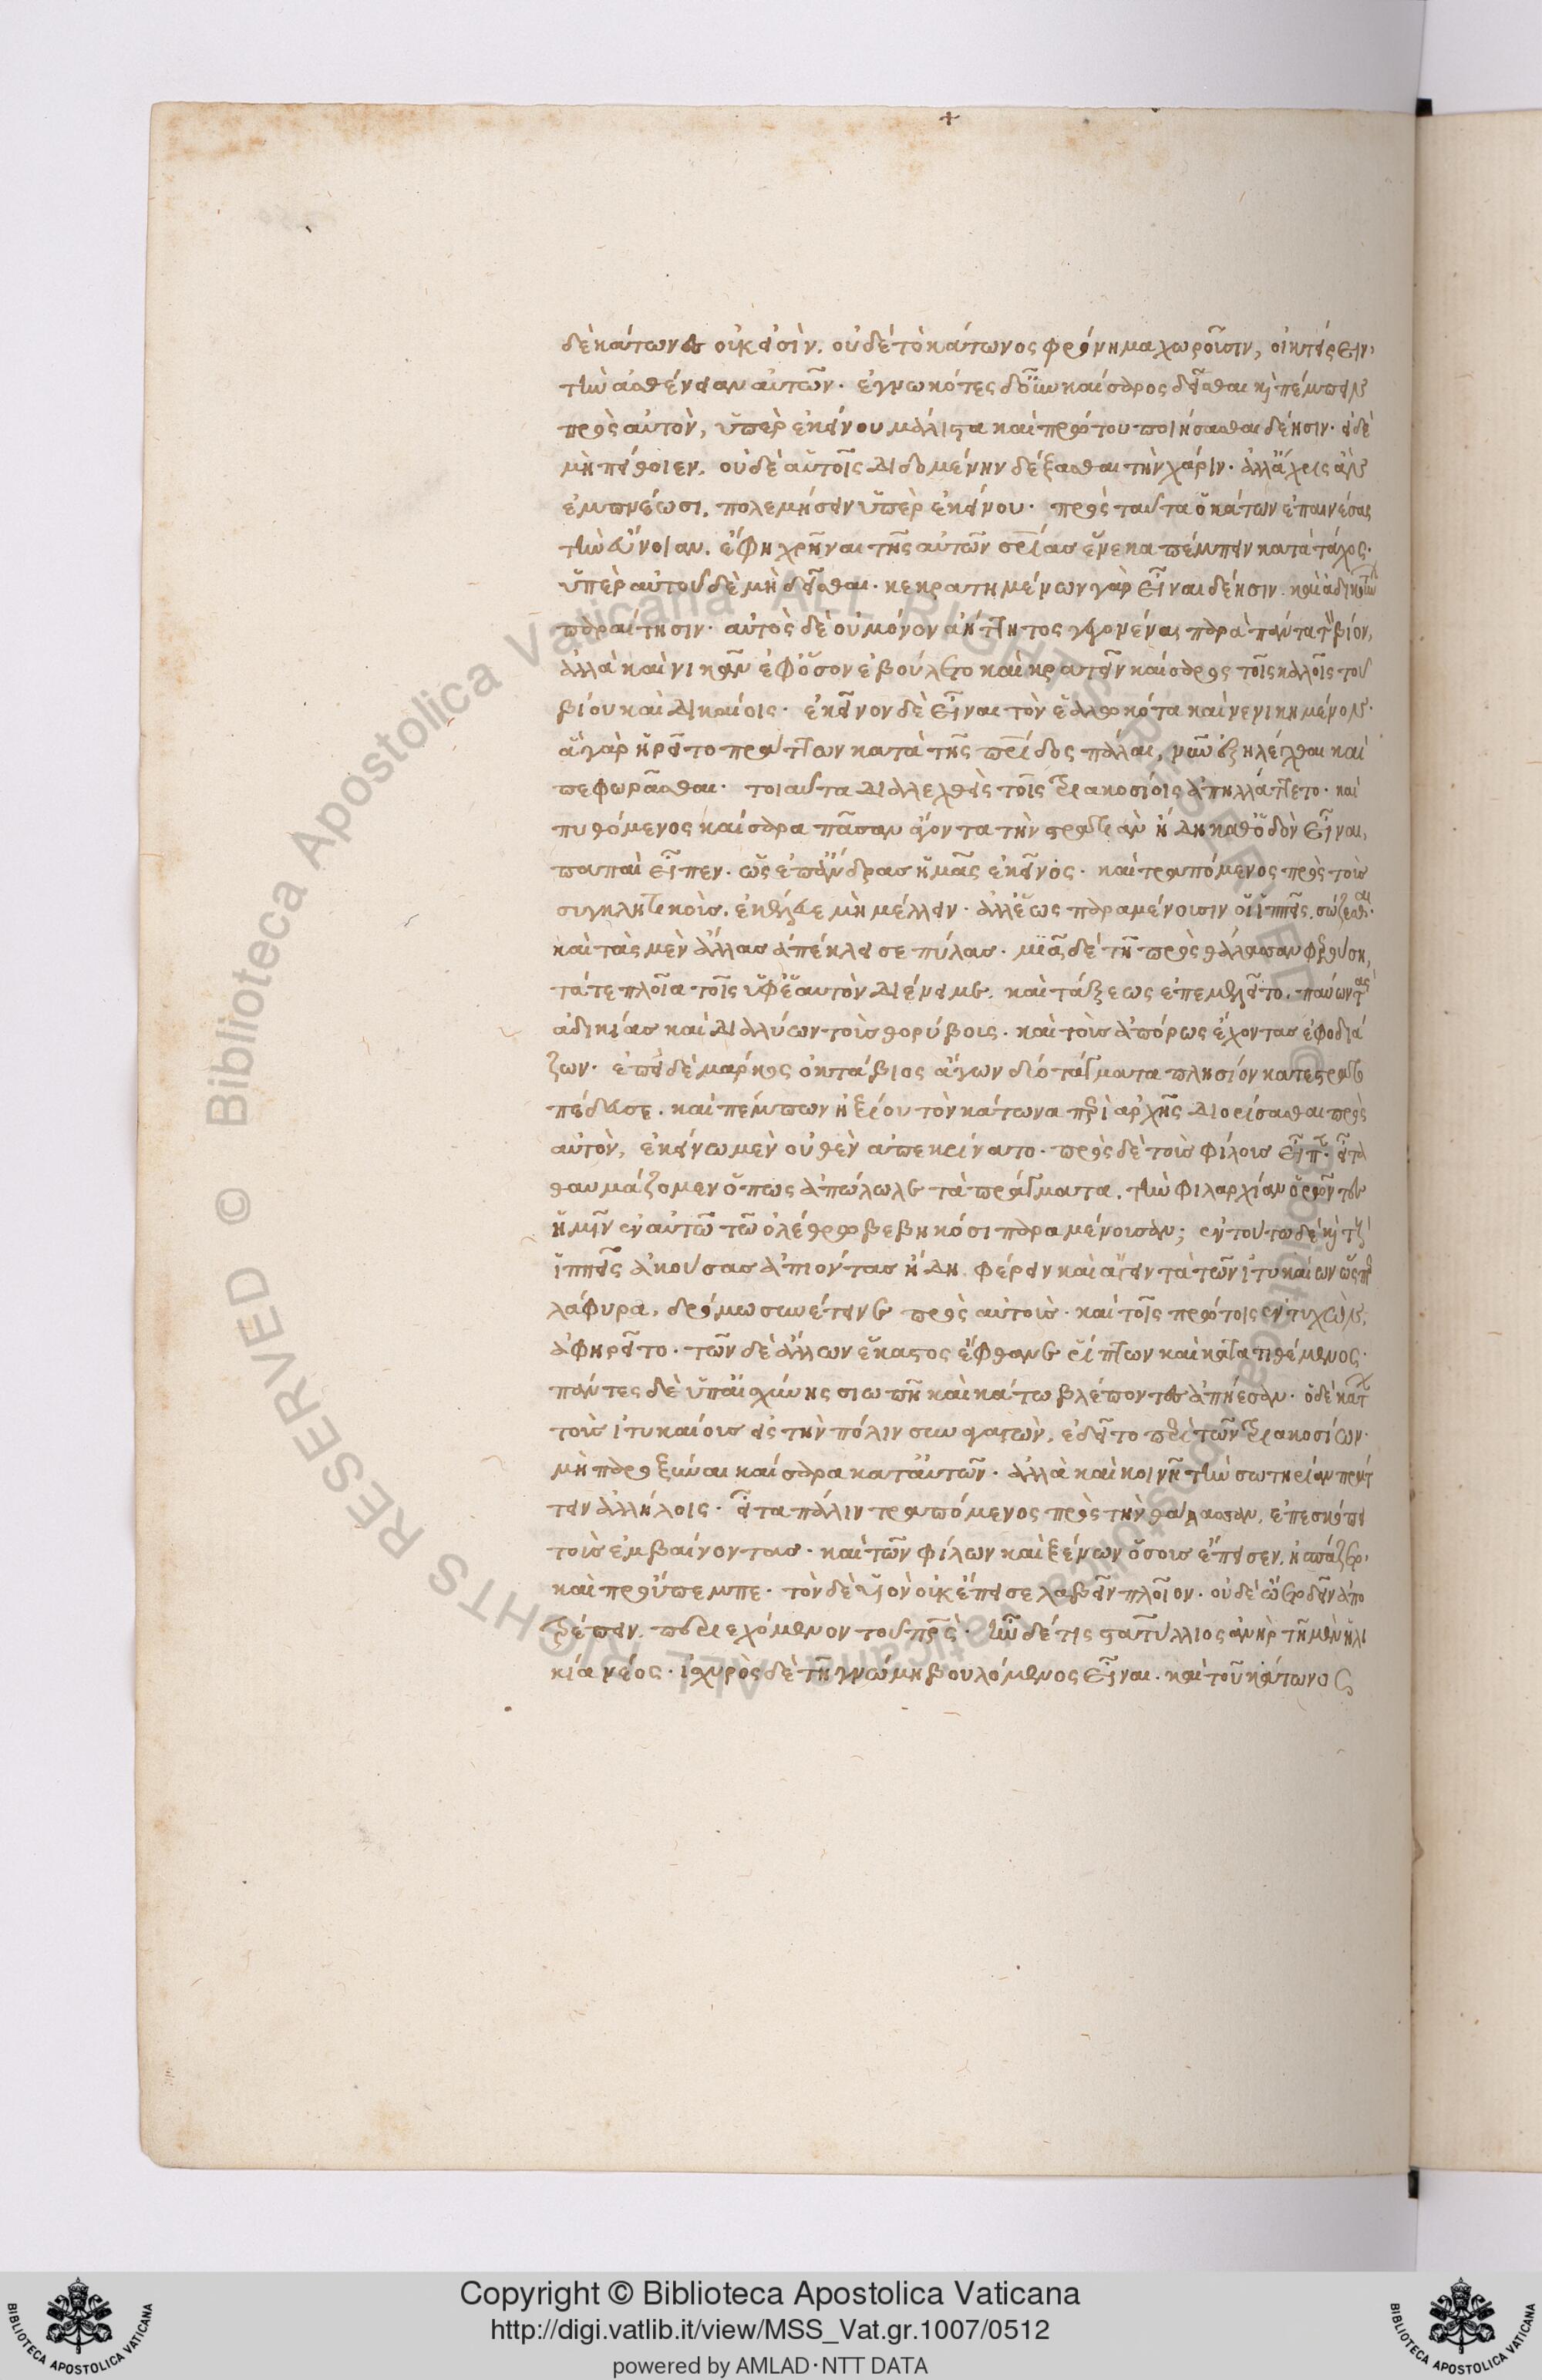 δὲ κάτωνες οὐκ εἰσὶν. οὐδὲ τὸ κάτωνος φρόνημα χωροῦσιν, οἰκτείρειν
τὴν ἀσθένειαν αὐτῶν. ἐγνωκότες δ' οὖν καίσαρος δεῖσθαι καὶ πέμπειν
πρὸς αὐτὸν, ὑπὲρ ἐκείνου μάλιστα καὶ πρώτου ποιήσασθαι δέησιν. εἰ δὲ
μὴ πείθοιεν, οὐδὲ αὐτοῖς διδομένην δέξασθαι τὴν χάριν. ἀλλ' ἄχρις ἂν
ἐμπνέωσι, πολεμήσειν ὑπὲρ ἐκείνου. πρὸς ταῦτα ὁ κάτων ἐπαινέσας
τὴν εὔνοιαν, ἔφη χρῆναι τῆς αὐτῶν σωτηρίας ἕνεκα πέμπειν κατὰ τάχος.
ὑπὲρ αὐτοῦ δὲ μὴ δεῖσθαι. κεκρατημένων γὰρ εἶναι δέησιν. καὶ ἀδικούντων
παραίτησιν. αὐτὸς δὲ οὐ μόνον ἀήττητος γεγονέναι παρὰ πάντα τὸν βίον,
ἀλλὰ καὶ νικᾶν ἐφ' ὅσον ἐβούλετο καὶ κρατεῖν καίσαρος τοῖς καλοῖς τοῦ
βίου καὶ δικαίοις. ἐκεῖνον δὲ εἶναι τὸν ἑαλωκότα καὶ νενικημένον.
ἃ γὰρ ἠρνεῖτο πράττων κατὰ τῆς πατρίδος πάλαι, νῦν ἐξηλέγχθαι καὶ
πεφωρᾶσθαι. τοιαῦτα διαλεχθεὶς τοῖς τριακοσίοις ἀπηλλάττετο. καὶ
πυθόμενος καίσαρα πᾶσαν ἄγοντα τὴν στρατιὰν ἤδη καθ' ὁδὸν εἶναι,
παπαὶ εἶπεν. ὡς ἐπ' ἄνδρας ἡμᾶς ἐκεῖνος. καὶ τραπόμενος πρὸς τοὺς
συγκλητικοὺς, ἐκέλευε μὴ μέλλειν. ἀλλ' ἕως παραμένουσιν οἱ ἱππεῖς, σώζεσθαι.
καὶ τὰς μὲν ἄλλας ἀπέκλεισε πύλας. μιᾷ δὲ τῇ πρὸς θάλασσαν φερούσῃ,
τά τε πλοῖα τοῖς ὑφ' ἑαυτὸν διένειμε. καὶ τάξεως ἐπεμελεῖτο, παύων τὰς
ἀδικίας καὶ διαλύων τοὺς θορύβους. καὶ τοὺς ἀπόρως ἔχοντας ἐφοδιά
ζων. ἐπεὶ δὲ μάρκος ὀκτάβιος ἄγων δύο τάγματα πλησίον κατεστρατο
πέδευσε. καὶ πέμπων ἠξίου τὸν κάτωνα περὶ ἀρχῆς διορίσασθαι πρὸς
αὐτὸν, ἐκείνῳ μὲν οὐθὲν ἀπεκρίνατο. πρὸς δὲ τοὺς φίλους εἶπεν. εἶτα
θαυμάζομεν ὅπως ἀπόλωλε τὰ πράγματα, τὴν φιλαρχίαν ὁρῶντες
ἡμῖν ἐν αὐτῷ τῷ ὀλέθρῳ βεβηκόσι παραμένουσαν; ἐν τούτῳ δὲ καὶ τοὺς
ἱππεῖς ἀκούσας ἀπιόντας ἤδη φέρειν καὶ ἄγειν τὰ τῶν ἰτυκαίων ὥσπερ
λάφυρα, δρόμῳ συνέτεινε πρὸς αὐτοὺς. καὶ τοῖς πρώτοις ἐντυχὼν,
ἀφῃρεῖτο. τῶν δὲ ἄλλων ἕκαστος ἔφθανε ῥίπτων καὶ κατατιθέμενος.
πάντες δὲ ὑπ' αἰσχύνης σιωπῇ καὶ κάτω βλέποντες ἀπῄεσαν. ὁ δὲ κάτων
τοὺς ἰτυκαίους εἰς τὴν πόλιν συναγαγὼν, ἐδεῖτο περὶ τῶν τριακοσίων.
μὴ παροξῦναι καίσαρα κατ' αὐτῶν. ἀλλὰ καὶ κοινῇ τὴν σωτηρίαν πράτ
τειν ἀλλήλοις. εἶτα πάλιν τραπόμενος πρὸς τὴν θάλασσαν, ἐπεσκόπει
τοὺς ἐμβαίνοντας. καὶ τῶν φίλων καὶ ξένων ὅσους ἔπεισεν, ἠσπάζετο
καὶ προὔπεμπε. τὸν δὲ υἱὸν οὐκ ἔπεισε λαβεῖν πλοῖον. οὐδὲ ᾤετο δεῖν ἀπο
τρέπειν περιεχόμενον τοῦ πατρὸς. ἦν δέ τις στατύλλιος ἀνὴρ τῇ μὲν ἡλι
κίᾳ νέος. ἰσχυρὸς δὲ τῇ γνώμῃ βουλόμενος εἶναι. καὶ τοῦ κάτωνος
Copyright © Biblioteca Apostolica Vaticana
http://digi.vatlib.it/view/MSS_Vat.gr.1007/0512
powered by AMLAD·NTT DATA
BIBLIOTECA APOSTOLICA VATICANA
BIBLIOTECA APOSTOLICA VATICANA
© Biblioteca Apostolica Vaticana ALL RIGHTS RESERVED
© Biblioteca Apostolica Vaticana ALL RIGHTS RESERVED